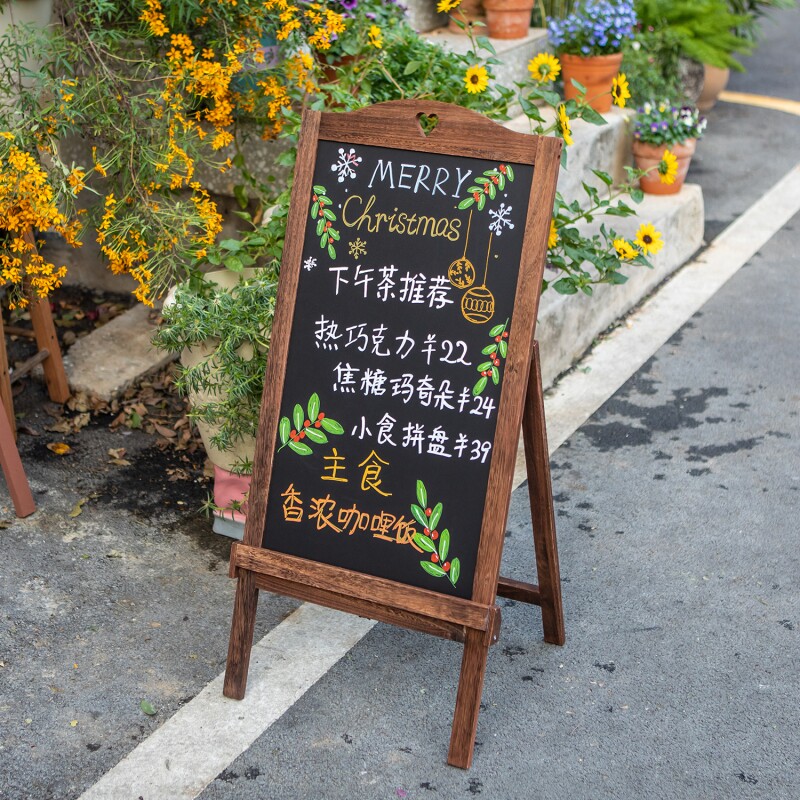 MERRY
Christmas
下午茶推荐
热巧克力¥22
焦糖玛奇朵¥24
小食拼盘¥39
主食
香浓咖哩饭